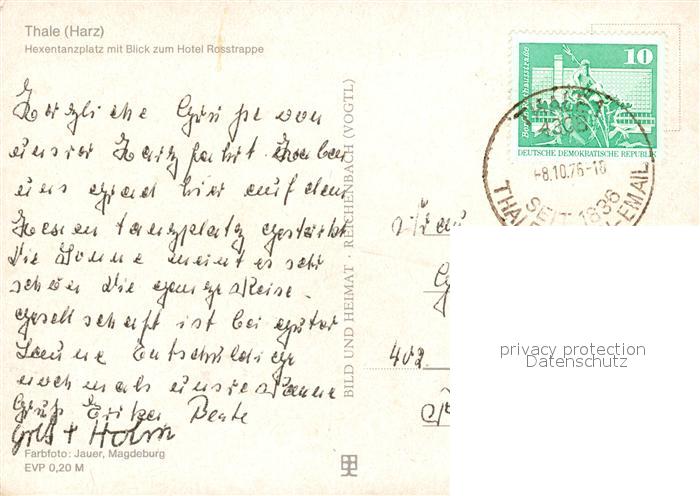 Thale (Harz)
Hexentanzplatz mit Blick zum Hotel Rosstrappe
Herzliche Grüße von
unsrer Harzfahrt haben
uns grad hier auf dem
Hexentanzplatz gestärkt
Die Sonne meint es sehr
schön Die ganze Reise-
gesellschaft ist bei guter
Laune Entschuldige
nochmals unsre Panne
Gruß Erika Beate
+ Holm
Farbfoto: Jauer, Magdeburg
EVP 0,20 M
BILD UND HEIMAT · REICHENBACH (VOGTL)
10
DEUTSCHE DEMOKRATISCHE REPUBLIK
THALE
4308
-8.10.76-18
SEIT 1836
THAL -EMAIL
Frau
402
privacy protection
Datenschutz